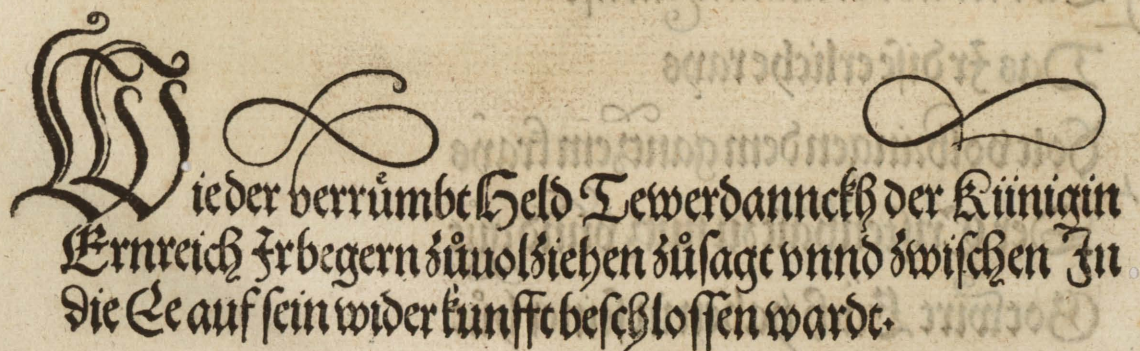 Wie der verrůmbt Held Tewerdannckh der Künigin
Ernreich Irbegern zůuolziehen zůsagt vnnd zwischen In
die Ee auf sein widerkunfft beschlossen wardt.